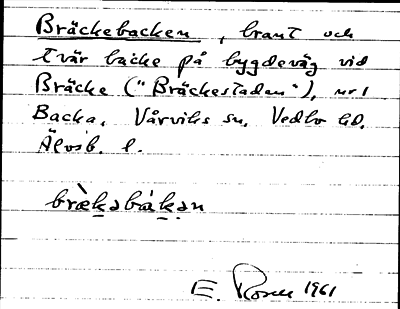 Bräckebacken, brant och
tvär backe på bygdeväg vid
Bräcke ("Bräckestaden"), nr 1
Backa. Vårviks sn. Vedbo hd.
Älvsb. l.
brækəbakən
E. Rosell 1961